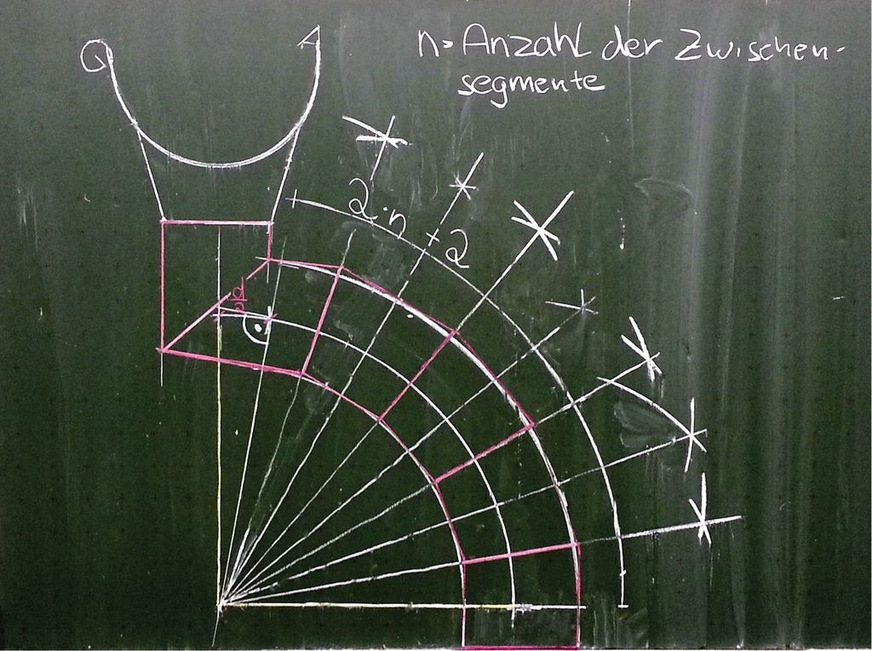 Q A
n = Anzahl der Zwischen-
segmente
2·n+2